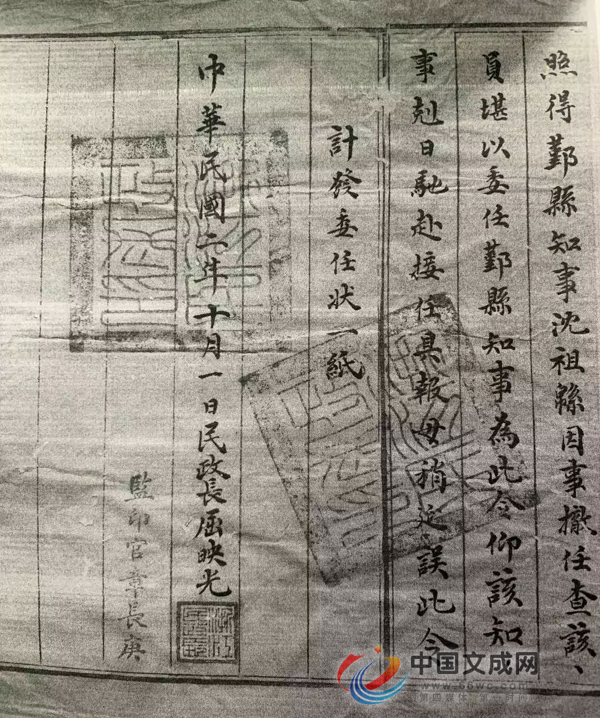 照得鄞縣知事沈祖緜因事撤任查該、
員堪以委任鄞縣知事為此令仰該知
事剋日馳赴接任具報毋稍延誤此令
計發委任狀一紙
中華民國二年十月一日民政長屈映光
監印官章長庚
中国文成网
www.66wc.com